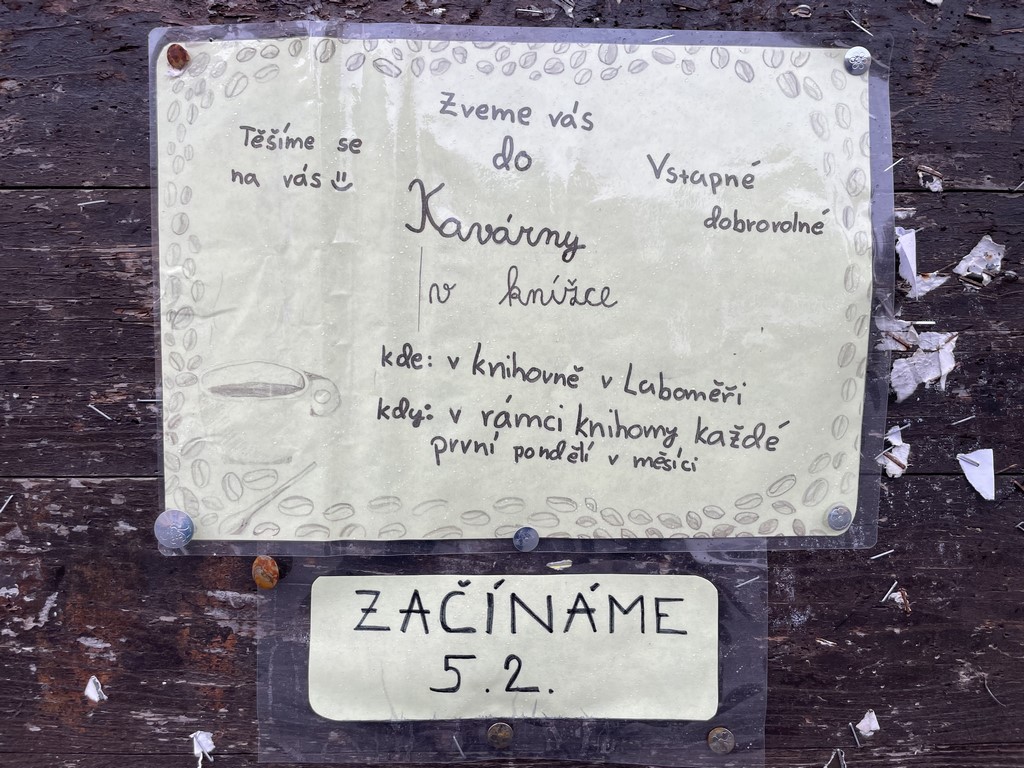 Zveme vás
do
Kavárny
v knížce
Těšíme se
na vás
Vstupné
dobrovolné
kde: v knihovně v Luboměři
kdy: v rámci knihovny každé
první pondělí v měsíci
ZAČÍNÁME
5.2.